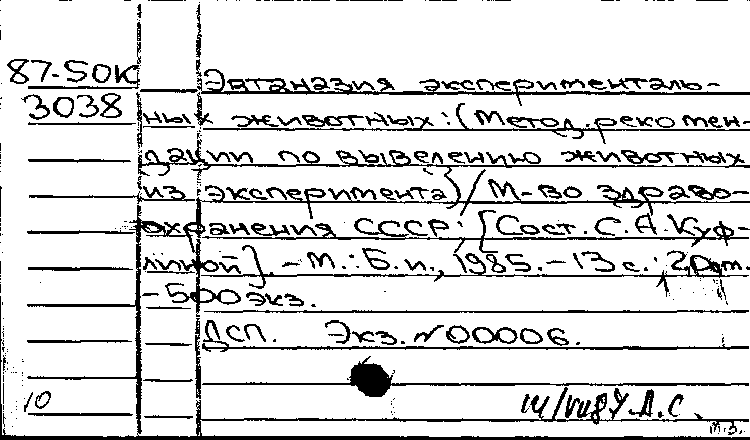 87-50К
3038
Эвтаназия эксперименталь-
ных животных: (Метод. рекомен-
дации по выведению животных
из эксперимента) / М-во здраво-
охранения СССР; [Сост. С. А. Куф-
линой]. - М.: Б.и., 1985. - 13 с.;
- 500 экз.
ДСП. Экз. N 00006.
10
М.З.